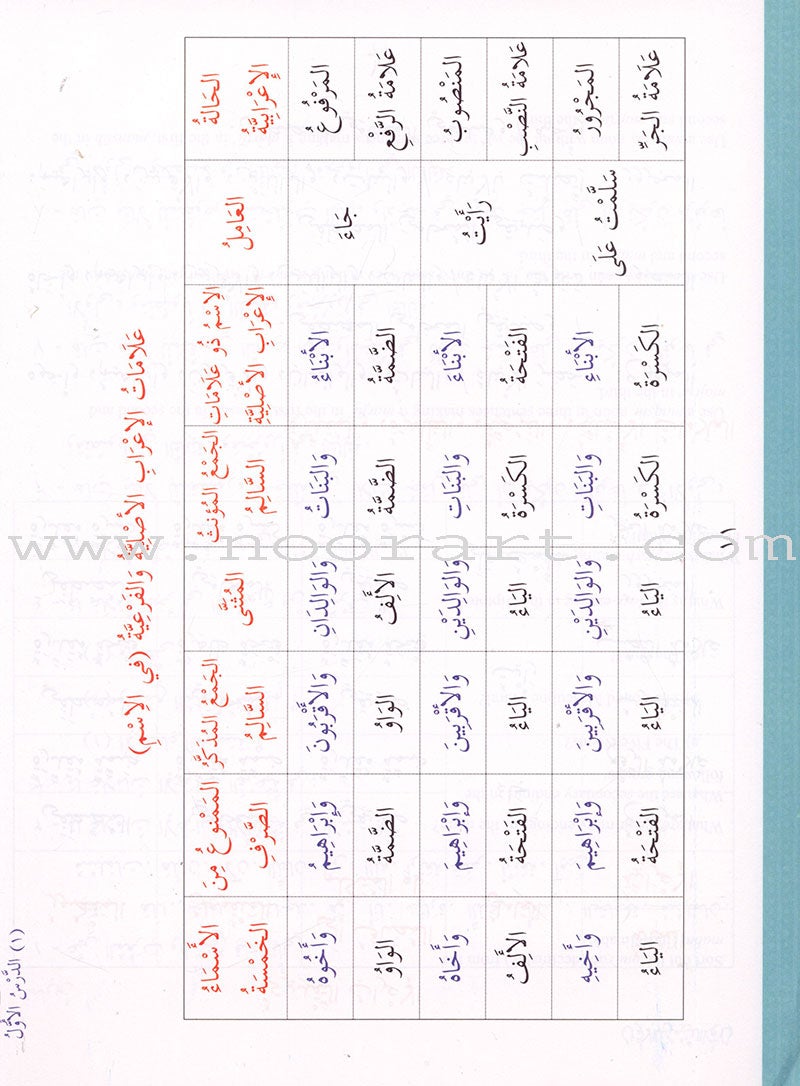 (١) الدَّرْسُ الأَوَّلُ
عَلَامَاتُ الإِعْرَابِ الأَصْلِيَّةُ وَالفَرْعِيَّةُ (فِي الِاسْمِ)
الحَالَةُ الإِعْرَابِيَّةُ العَامِلُ الِاسْمُ ذُو عَلَامَاتِ الإِعْرَابِ الأَصْلِيَّةِ الجَمْعُ المُؤَنَّثُ السَّالِمُ المُثَنَّى الجَمْعُ المُذَكَّرُ السَّالِمُ المَمْنُوعُ مِنَ الصَّرْفِ الأَسْمَاءُ الخَمْسَةُ
المَرْفُوعُ جَاءَ الأَبْنَاءُ وَالبَنَاتُ وَالوَالِدَانِ وَالأَقْرَبُونَ وَإِبْرَاهِيمُ وَأَخُوهُ
عَلَامَةُ الرَّفْعِ الضَّمَّةُ الضَّمَّةُ الأَلِفُ الوَاوُ الضَّمَّةُ الوَاوُ
المَنْصُوبُ رَأَيْتُ الأَبْنَاءَ وَالبَنَاتِ وَالوَالِدَيْنِ وَالأَقْرَبِينَ وَإِبْرَاهِيمَ وَأَخَاهُ
عَلَامَةُ النَّصْبِ الفَتْحَةُ الكَسْرَةُ اليَاءُ اليَاءُ الفَتْحَةُ الأَلِفُ
المَجْرُورُ سَلَّمْتُ عَلَى الأَبْنَاءِ وَالبَنَاتِ وَالوَالِدَيْنِ وَالأَقْرَبِينَ وَإِبْرَاهِيمَ وَأَخِيهِ
عَلَامَةُ الجَرِّ الكَسْرَةُ الكَسْرَةُ اليَاءُ اليَاءُ الفَتْحَةُ اليَاءُ
١١
www.noorart.com